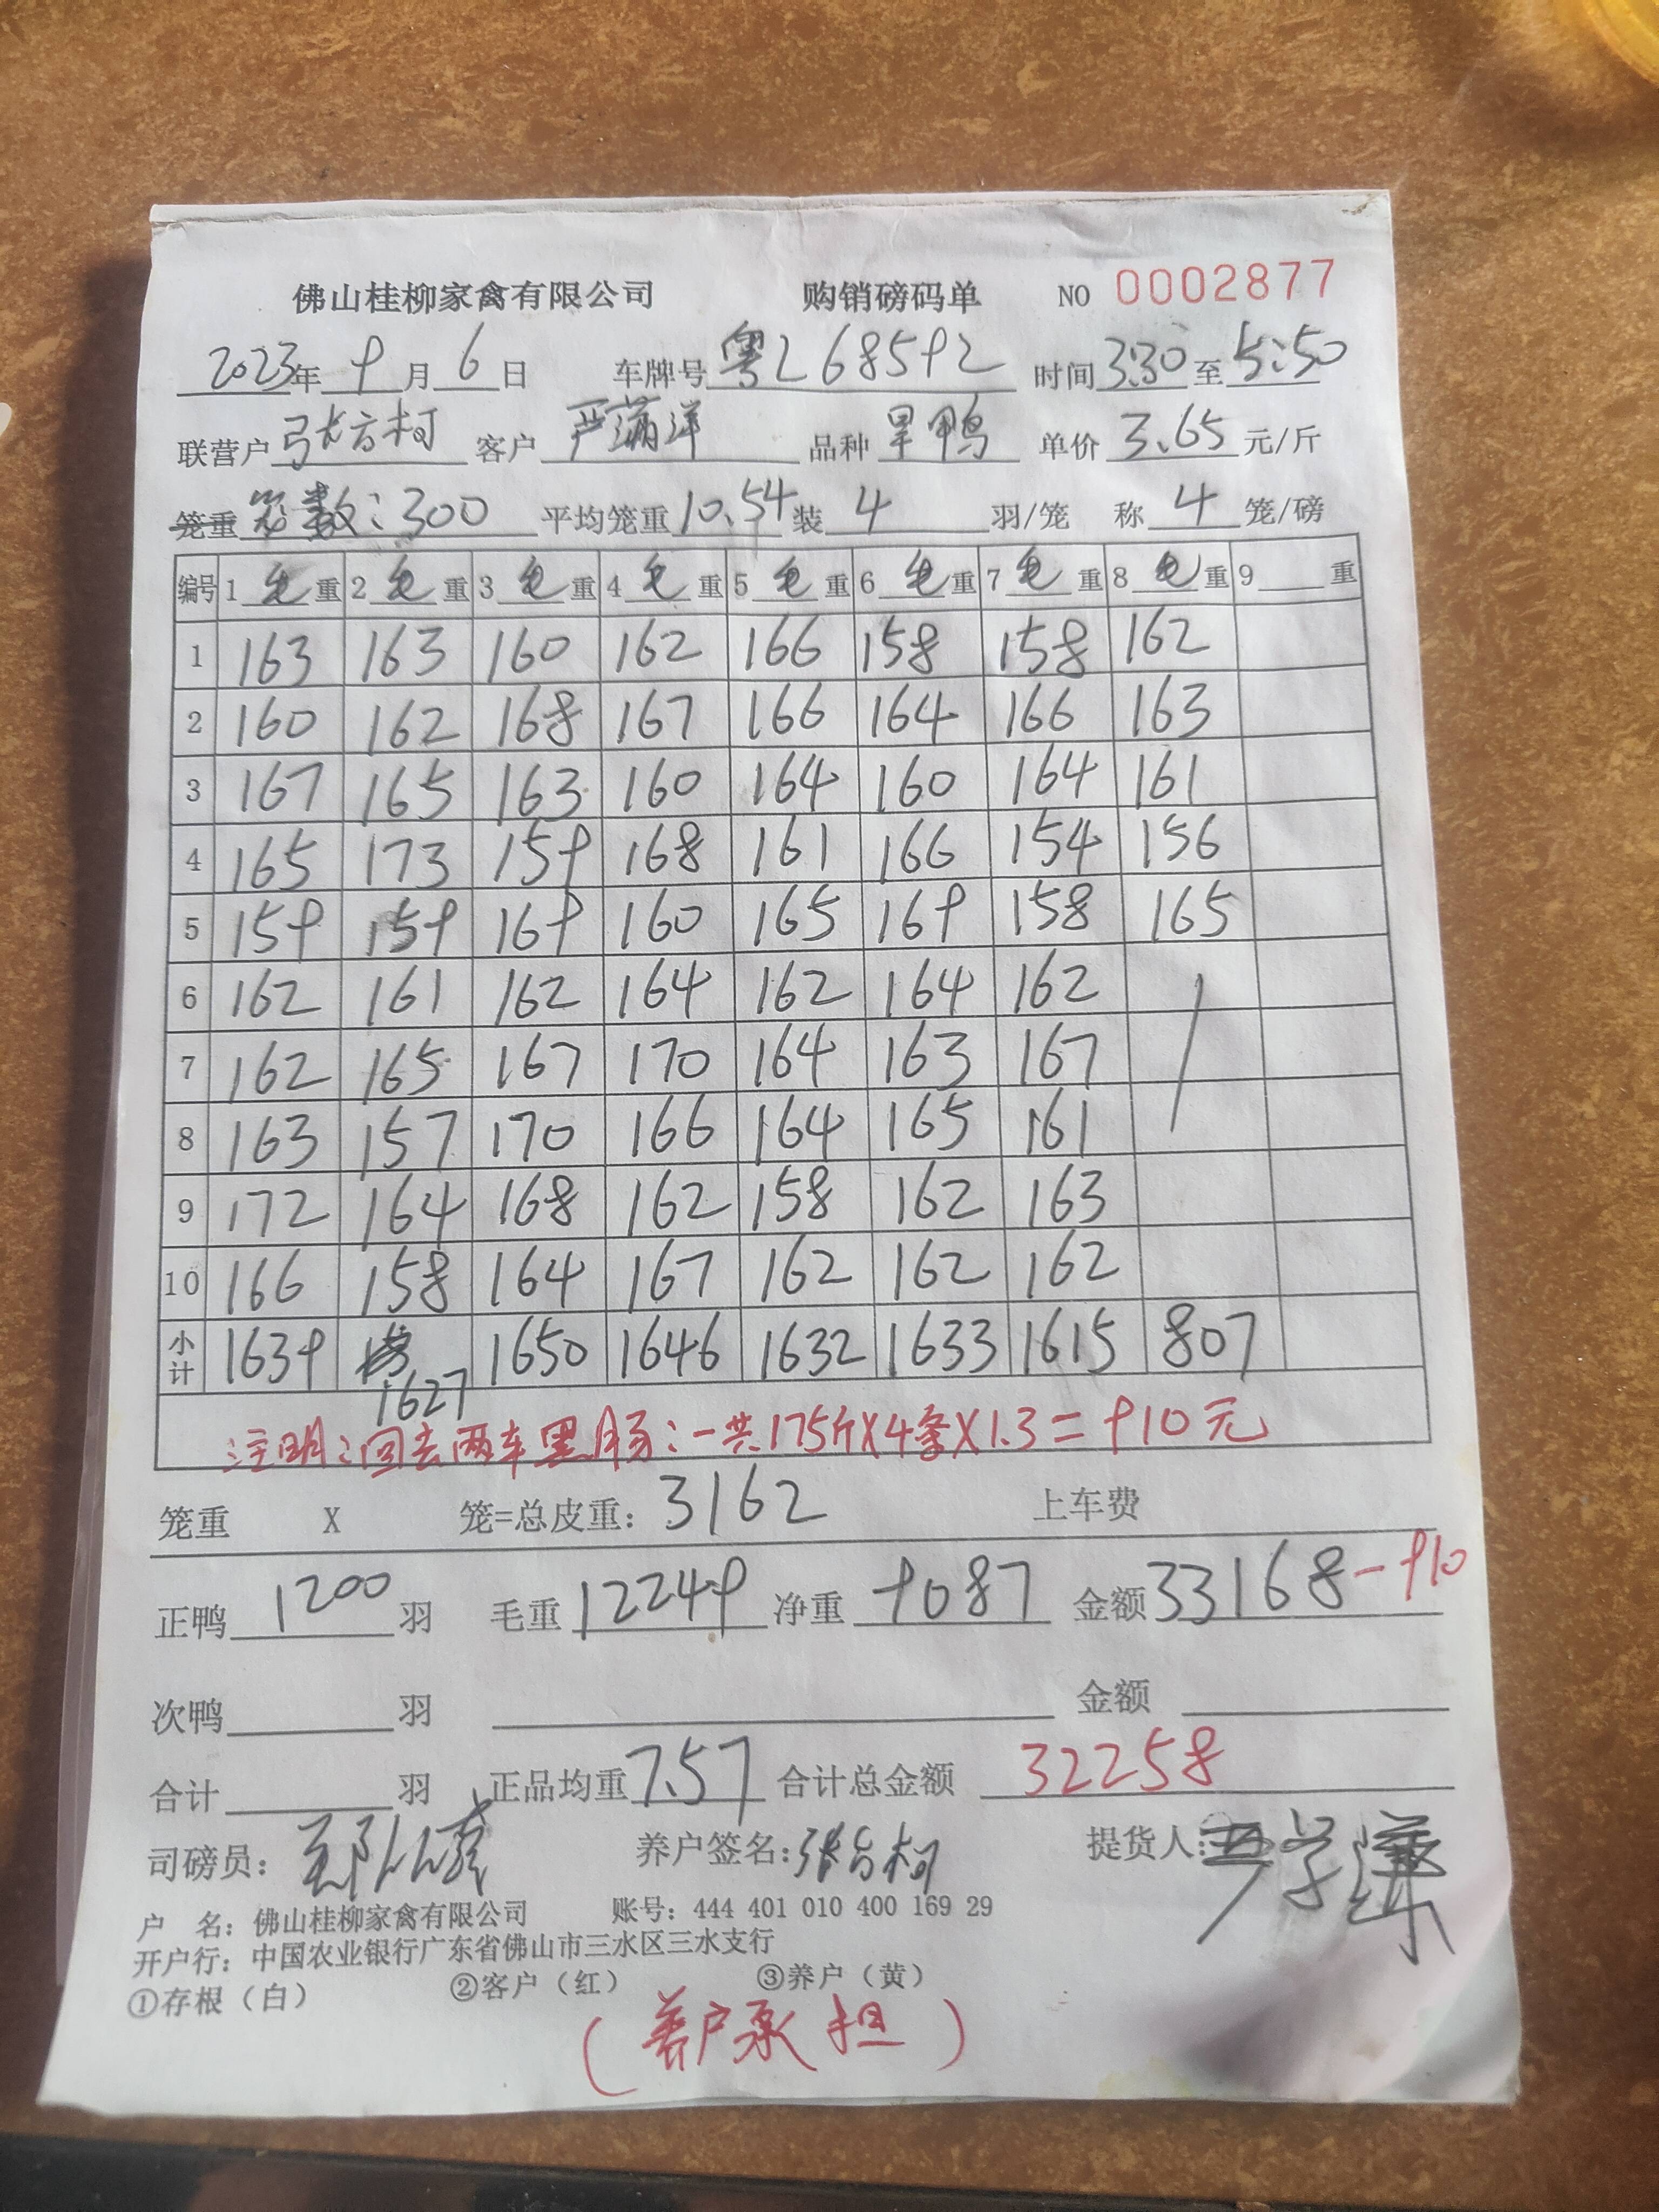 佛山桂柳家禽有限公司 购销磅码单 NO 0002877
2023年 9 月 6 日 车牌号 粤L68592 时间 3:30 至 5:50
联营户 张方柯 客户 严蒲洋 品种 旱鸭 单价 3.65 元/斤
笼重 笼数:300 平均笼重 10.54 装 4 羽/笼 称 4 笼/磅
编号 1 毛 重 2 毛 重 3 毛 重 4 毛 重 5 毛 重 6 毛 重 7 毛 重 8 毛 重 9 重
1 163 163 160 162 166 158 158 162
2 160 162 168 167 166 164 166 163
3 167 165 163 160 164 160 164 161
4 165 173 159 168 161 166 154 156
5 159 159 169 160 165 169 158 165
6 162 161 162 164 162 164 162
7 162 165 167 170 164 163 167
8 163 157 170 166 164 165 161
9 172 164 168 162 158 162 163
10 166 158 164 167 162 162 162
小计 1639 1627 1650 1646 1632 1633 1615 807
注明:回去两车黑肠:一共175斤X4条X1.3=910元
笼重 X 笼=总皮重: 3162 上车费
正鸭 1200 羽 毛重 12249 净重 9087 金额 33168-910
次鸭 羽 金额
合计 羽 正品均重 7.57 合计总金额 32258
司磅员: 养户签名: 提货人:
户 名: 佛山桂柳家禽有限公司 账号: 444 401 010 400 169 29
开户行: 中国农业银行广东省佛山市三水区三水支行
①存根（白） ②客户（红） ③养户（黄）
(养户承担)